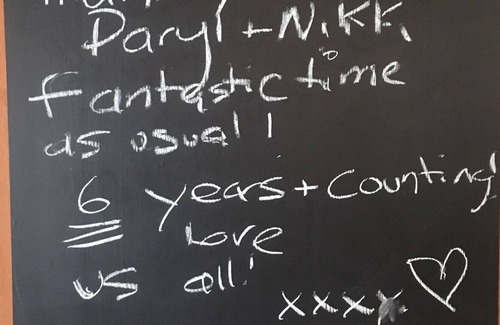 Daryl + Nikki
fantastic time
as usual!
6 years + counting
Love
us all!
xxxx